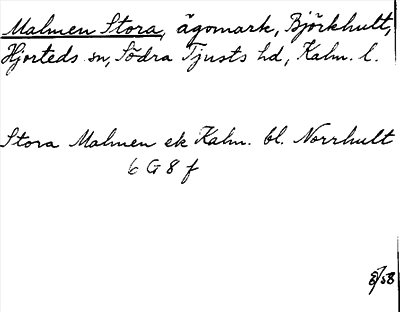 Malmen Stora, ägomark, Björkhult,
Hjorteds sn, Södra Tjusts hd, Kalm. l.
Stora Malmen ek Kalm. bl. Norrhult
6 G 8 f
8/58